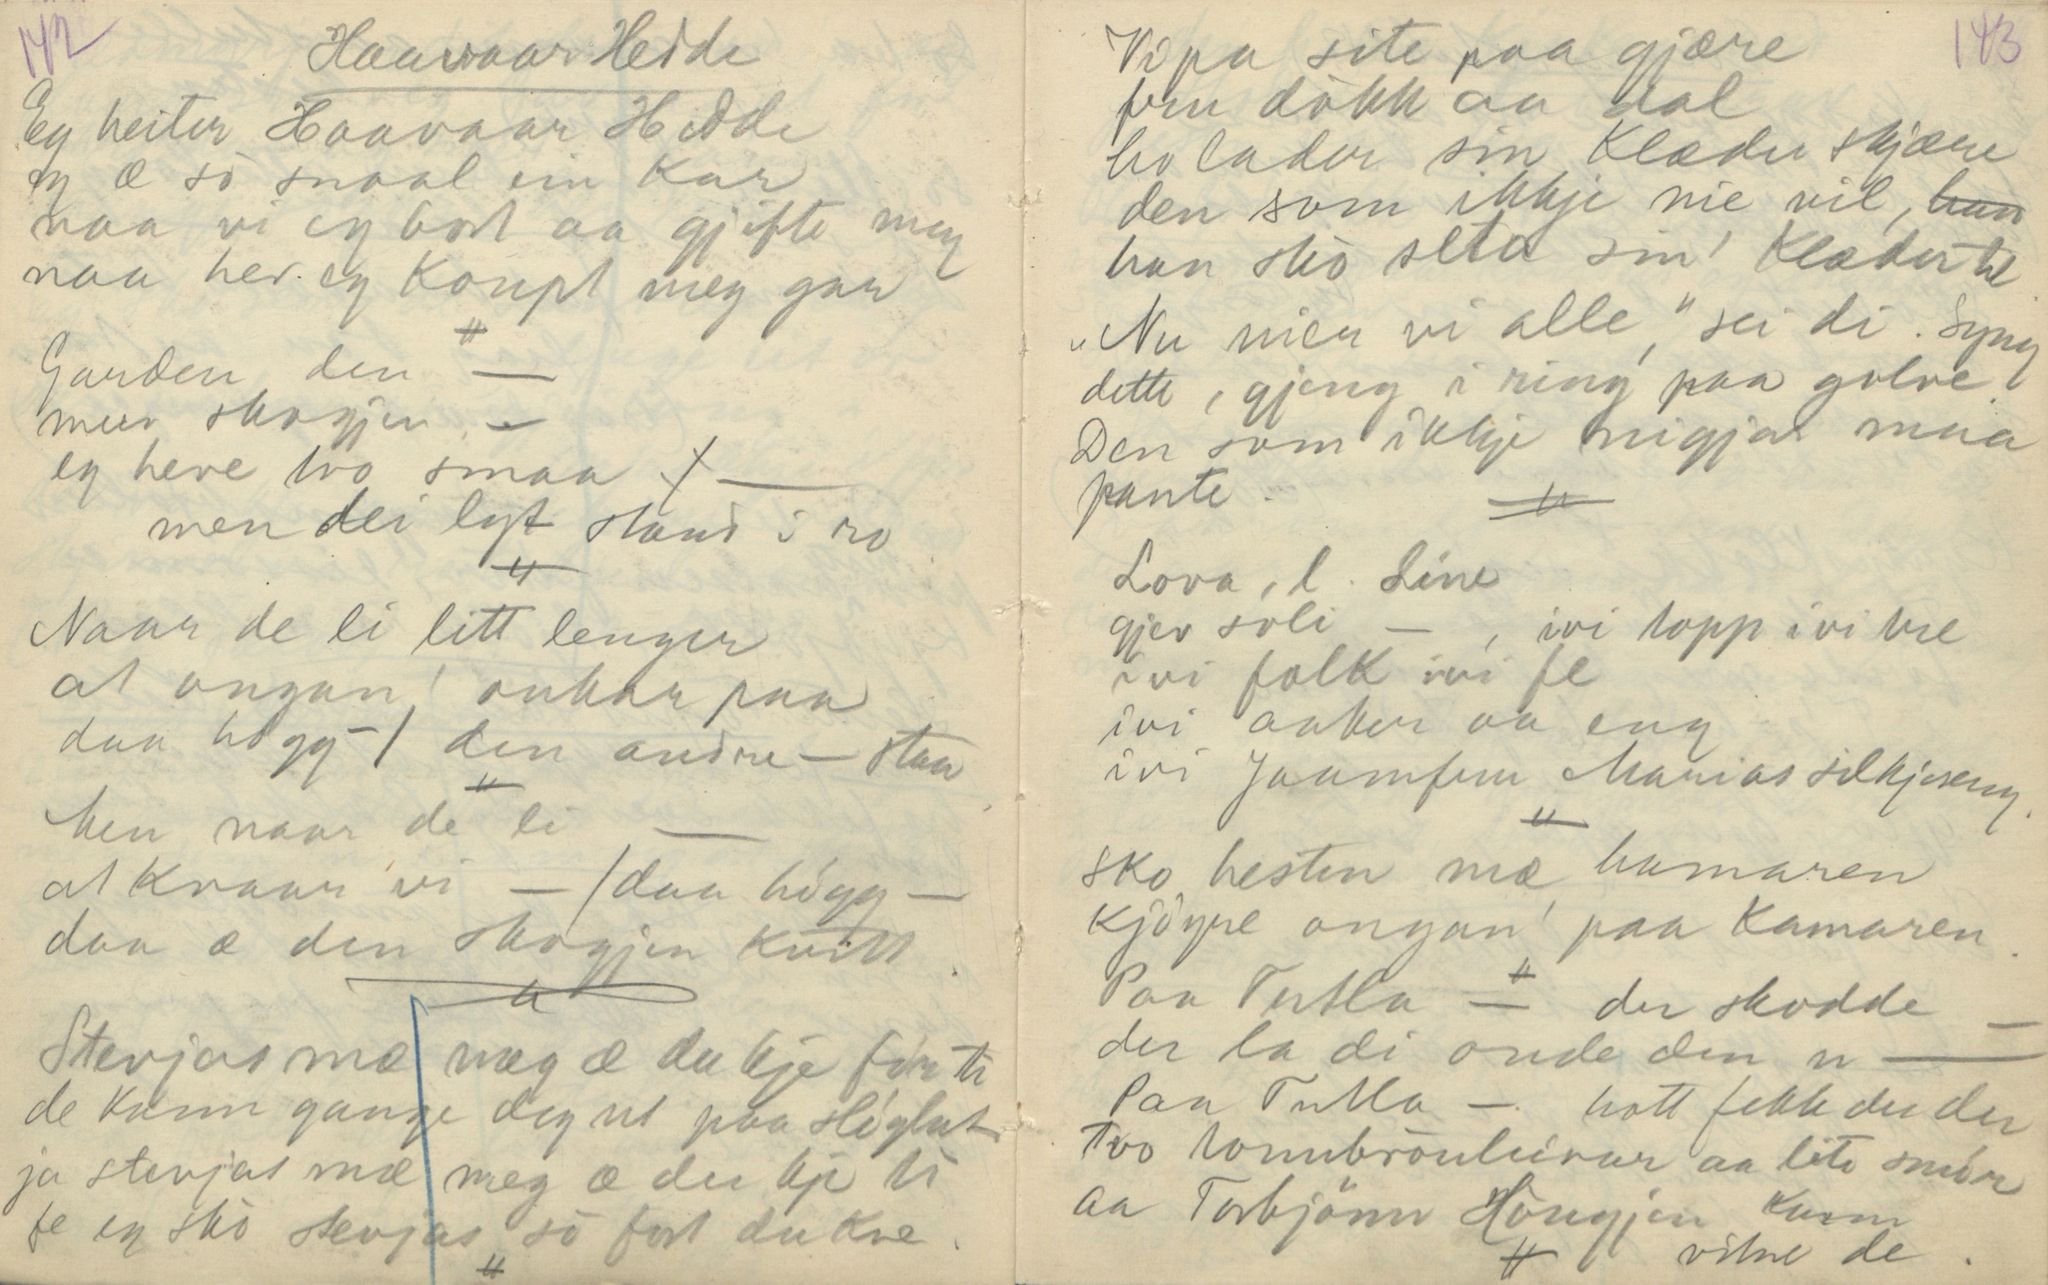 142
Haavaar Hedde
Eg heiter Haavaar Hedde
eg æ so snaal ein Kar
naa vi eg bort aa gjifte meg
naa hev eg Køupt meg gar
"
Garden den —
meir skogjen —
eg heve tvo smaa —
men dei lyt stand i ro
"
Naar de li litt lenger
at ungan' aukar paa
daa høgg — / den andre — staa
"
Men naar de li —
at Kvaar vi — / daa høgg —
daa æ den skogjen Kvitt.
"
Stevjas mæ meg æ du kje før ti
de Kunn gange deg ut paa
ja stevjas mæ meg æ du kje ti
fe eg sko stevjas so fort du Kve.
"
143
Vipa site paa gjære
fru døkk aa dal
ho lader sin Klæder skjære
den som ikkje nie vil, han
han sko slta sin' Klæder til
"Nu nier vi alle," sei di. Syng
dette, gjeng i ring paa golve.
Den som ikkje nigjar maa
pante.
"
Lova, l. Line
gjev soli —, ivi topp ivi tre
ivi folk ivi fe
ivi aaker aa eng
ivi Jaamfru Marias silkjeseng.
"
Sko hesten mæ hamaren
Kjøype ungan' paa Kamaren.
"
Paa Tutla — der skodde —
der la di onde den n —
Paa Tutla —. hott fekk du der
Tvo tunnbrøuleivar aa lite smør
aa Torbjønn Høugjen Kunn
vitne de.
"